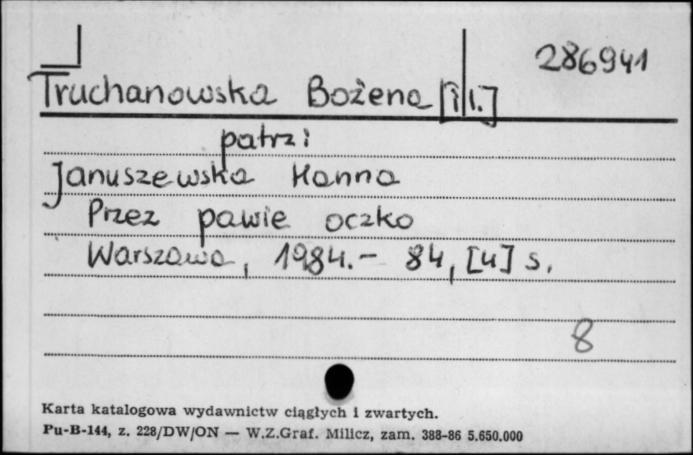 286941
Truchanowska Bożena [il.]
patrz:
Januszewska Hanna
Przez pawie oczko
Warszawa, 1984.- 84, [4] s.
8
Karta katalogowa wydawnictw ciągłych i zwartych.
Pu-B-144, z. 228/DW/ON — W.Z.Graf. Milicz, zam. 388-86 5.650.000